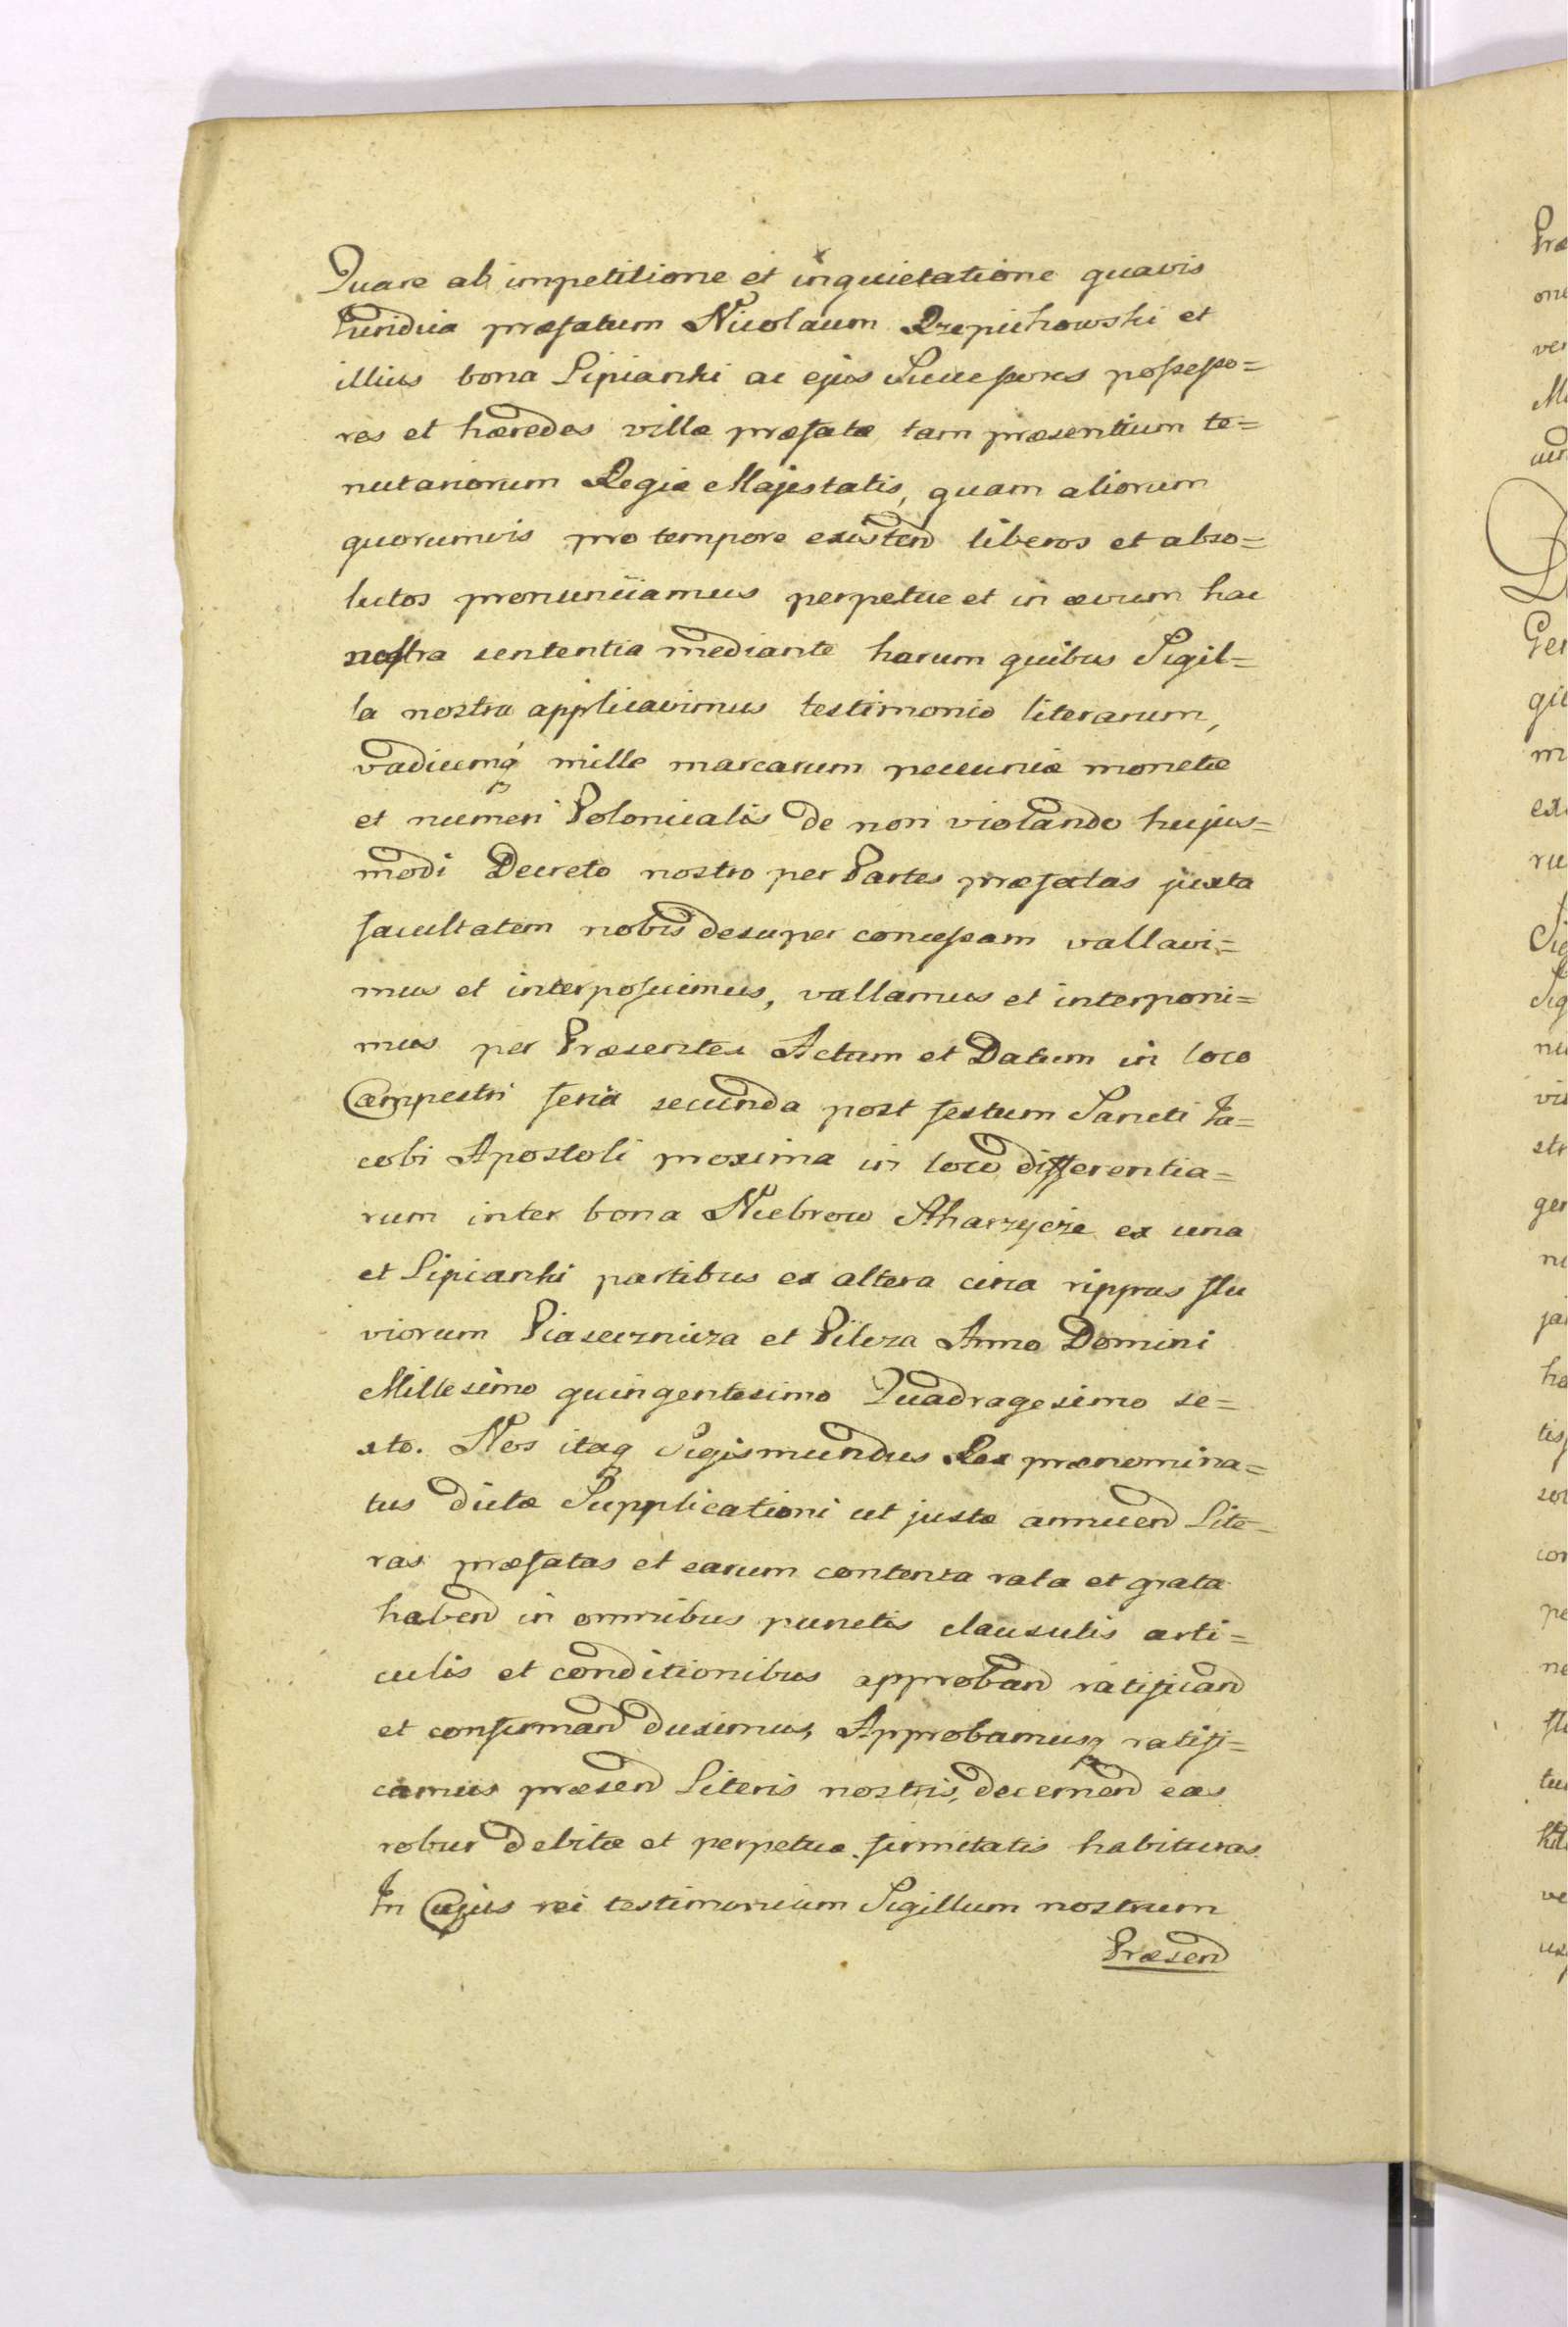 Quare ab impetitione et inquietatione quavis
Juridica præfatum Nicolaum Rzepichowski et
illius bona Lipianki ac ejus Successores possesso=
res et hæredes villæ præfatæ tam præsentium te=
nutariorum Regiæ Majestatis, quam aliorum
quorumvis pro tempore existen liberos et abso=
lutos pronunciamus perpetue et in ævum hac
nostra sententia mediante harum quibus Sigil=
la nostra applicavimus testimonio literarum,
vadiumq mille marcarum pecuniæ monetæ
et numeri Polonicalis de non violando hujus=
modi Decreto nostro per Partes præfatas juxta
facultatem nobis desuper concessam vallavi=
mus et interposuimus, vallamus et interponi=
mus per Præsentes Actum et Datum in loco
Campestri feria secunda post festum Sancti Ja=
cobi Apostoli proxima in loco differentia=
rum inter bona Niebrow ex una
et Lipianki partibus ex altera circa rippas flu
viorum Piasecznicza et Pilcza Anno Domini
Millesimo quingentesimo Quadragesimo se=
xto. Nos itaq Sigismundus Rex prænomina=
tus dictæ Supplicationi ut justæ annuend Lite=
ras præfatas et earum contenta rata et grata
habend in omnibus punctis clausulis arti=
culis et conditionibus approband ratificand
et confirmand duximus, Approbamusq ratifi=
camus præsend Literis nostris, decernend eas
robur debitæ et perpetuæ firmitatis habituras.
In Cujus rei testimonium Sigillum nostrum
Præsend